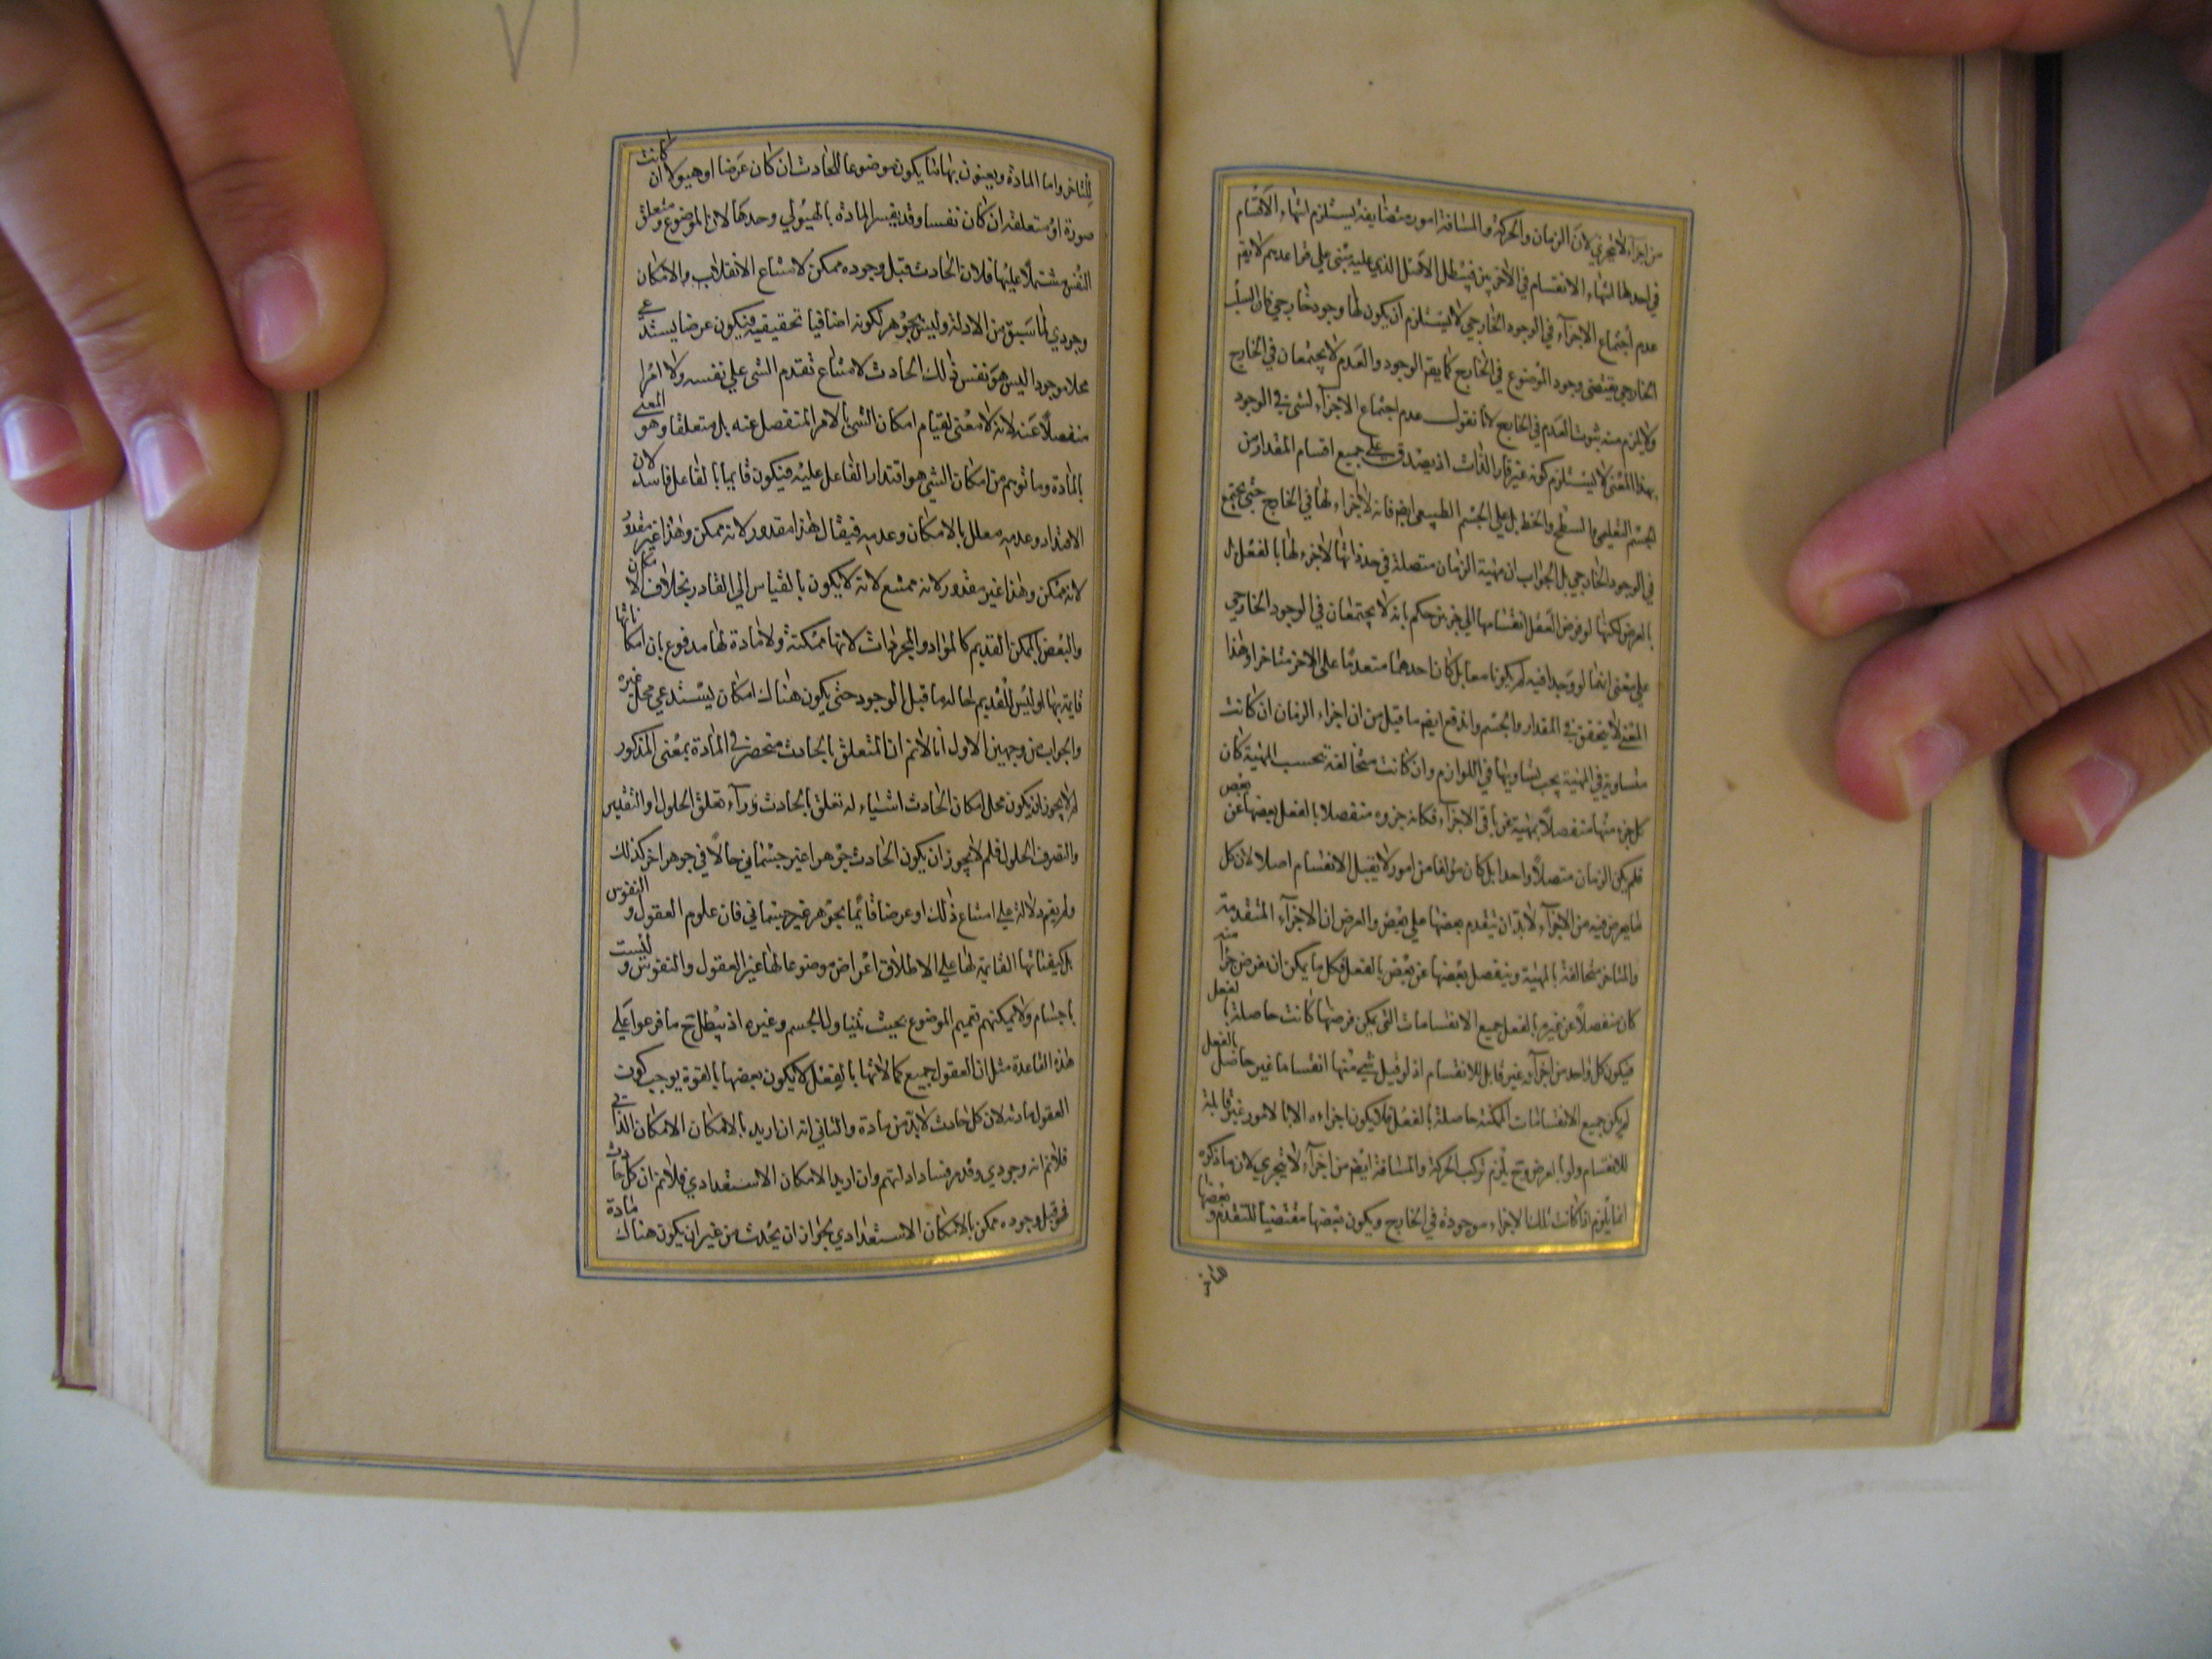 من اجزاء لا يتجزي لان الزمان والحركة والمسافة امور متطابقة يستلزم انتهاء الاقسام
في احدها انتهاء الانقسام في الاخرين فيبطل الاصل الذي عليه يبتني قواعدهم لا يقم
عدم اجتماع الاجزاء في الوجود الخارجي لا يستلزم ان يكون لها وجود خارجي فان السلب
الخارجي يقتضي وجود الموضوع في الخارج كما يقم الوجود والعدم لا يجتمعان في الخارج
ولا يلزم منه ثبوت العدم في الخارج لانا نقول عدم اجتماع الاجزاء لشئ في الوجود
بهذا المعنى لا يستلزم كونه غير قار الذات اذ يصدق على جميع اقسام المقدار من
الجسم التعليمي والسطح والخط بل على الجسم الطبيعي ايضم فانه لا اجزاء لها في الخارج حتى يجتمع
في الوجود الخارجي بل الجواب ان مهية الزمان متصلة في حد ذاتها لا جزء لها بالفعل
بالعرض لكنها لو فرض العقل انقسامها الي جزئين حكم بانه لا يجتمعان في الوجود الخارجي
علي معنى انهما لو وجدا فيه لم يكونا معا بل كان احدهما متقدما على الاخر متاخرا وهذا
المعنى لا يتحقق في المقدار والجسم واندفع ايضم ما قيل من ان اجزاء الزمان ان كانت
متساوية في المهية يجب تساويها في اللوازم وان كانت متخالفة بحسب المهية كان
كل جزء منها منفصلا بمهية عن باقي الاجزاء فكانه جزوه منفصلا بالفعل بعضها عن بعض
فلم يكن الزمان متصلا واحدا بل كان مؤلفا من امور لا يقبل الانقسام اصلا لان كل
ما يعرض فيه من الاجزاء لابد ان يتقدم بعضها علي بعض والعرض ان الاجزاء المتقدمة
والمتاخر متخالفة بالمهية وينفصل بعضها عن بعض بالفعل فكل ما يمكن ان يفرض جزأ منه
كان منفصلا عن غيره بالفعل جميع الانقسامات التي يمكن فرضها كانت حاصلة بالفعل
فيكون كل واحد من اجزائه غير قابل للانقسام اذ لو قبل شئ منها انقساما غير حاصل بالفعل
لم يكن جميع الانقسامات الممكنة حاصلة بالفعل فلا يكون اجزاءه الا بالامور غير قابلة
للانقسام ولو بالعرض وح يلزم تركب الحركة والمسافة ايضم من اجزاء لا يتجزي لان ما ذكره
انما يلزم اذا كانت تلك الاجزاء موجودة في الخارج ويكون بعضها مقتضيا للتقدم وبعضها
للتاخر
للتاخر واما المادة ويعنون بها ما يكون موضوعا للحادث ان كان عرضا او هيولا ان كانت
صورة او متعلقه ان كان نفسا وقد يفسر المادة بالهيولي وحدها لان الموضوع ومتعلق
النفس مشتملا عليها فلان الحادث قبل وجوده ممكن لامتناع الانقلاب والامكان
وجودي لما سبق من الادلة وليس بجوهر لكونه اضافيا تحقيقية فيكون عرضا يستدعي
محلا موجودا ليس هو نفس ذلك الحادث لامتناع تقدم الشئ علي نفسه ولا امرا
منفصلا عنه لانه لا معنى لقيام امكان الشئ بالامر المنفصل عنه بل متعلقا وهو المعنى
بالمادة وما توهم من امكان الشئ هو اقتدار الفاعل عليه فيكون قايما بالفاعل فاسد لان
الاقتدار وعدمه معلل بالامكان وعدمه فيقال هذا مقدور لانه ممكن وهذا غير مقدور
لانه ممكن وهذا غير مقدور لانه ممتنع لانه لا يكون بالقياس الي القادر بخلاف الامكان
والبعض بالممكن القديم كالمواد والمجردات لانها ممكنة ولا مادة لها مدفوع بان امكاناتها
قايمة بها او ليس للقديم حالة ما قبل الوجود حتى يكون هناك امكان يستدعي محل غيره
والجواب من وجهين الاول انا لا نم ان المتعلق بالحادث منحصر في المادة بمعنى المذكور
لم لا يجوز ان يكون محل امكان الحادث اشياء له تعلق بالحادث وراء تعلق الحلول والتقدير
والتصرف الحلول فلم لا يجوز ان يكون الحادث جوهرا غير جسماني حالا في جوهر اخر كذلك
ولم يقم دلالة علي امتناع ذلك او عرضا قايما بجوهر غير جسماني فان علوم العقول والنفوس
بل كيفياتها القايمة لها علي الاطلاق اعراض موضوعا لها غير العقول والنفوس وليست
باجسام ولا يمكنهم تعميم الموضوع بحيث يتناول للجسم وغيره اذ يبطل ح ما فرعوا علي
هذه القاعدة مثل ان العقول جميع كمالاتها بالفعل لا يكون بعضها بالقوة يوجب كون
العقول مادية لان كل حادث لابد من مادة والثاني انه ان اريد بالامكان الامكان الذاتي
فلا نم انه وجودي وقد مر فساد ادلتهم وان اريد الامكان الاستعدادي فلا نم ان كل حادث
فهو قبل وجوده ممكن بالامكان الاستعدادي لجواز ان يحدث من غير ان يكون هناك مادة